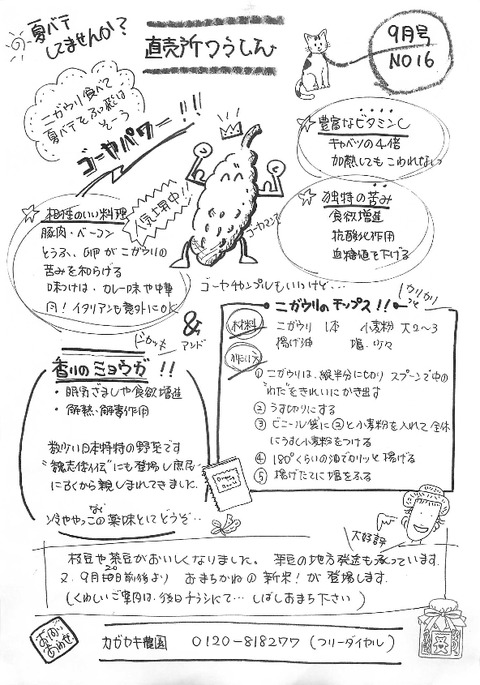 夏バテ
してませんか？
直売所つうしん
9月号
NO16
ニガウリ食べて
夏バテをぶっ飛ば
そう
ゴーヤパワー!!!
豊富なビタミンC
キャベツの4倍
加熱してもこわれない
独特の苦み
食欲増進
抗酸化作用
血糖値を下げる
人気上昇中!!
ゴーヤマン
相性のいい料理
豚肉・ベーコン
とうふ、卵がニガウリの
苦みを和らげる
味つけは、カレー味や中華
风！イタリアンも意外にOK
ゴーヤチャンプルもいいけど…
&
アンド
ニガウリのチップス!!
材料
ニガウリ 1本 小麦粉 大2〜3
揚げ油 塩 少々
作り方
① ニガウリは、縦半分に切り スプーンで中の
"わた"をきれいにかき出す
② うす切りにする
③ ビニール袋に②と小麦粉を入れて全体
にうすく小麦粉をつける
④ 180°くらいの油でカリッと揚げる
⑤ 揚げたてに塩をふる
香りのミョウガ!!
・眠気ざましや食欲増進
・解熱・解毒作用
数少い日本特特の野菜です
"魏志倭伝"にも登場し庶民
に古くから親しまれてきました。
冷ややっこの薬味としてどうぞ…
大好評
枝豆や茶豆がおいしくなりました。 茶豆の地方発送も承っています。
又、9月20日前後より あまちかねの新米！が登場します。
(くわしいご案内は、後日チラシにて… しばしおまち下さい)
カガヤキ農園 0120-818277 (フリーダイヤル)